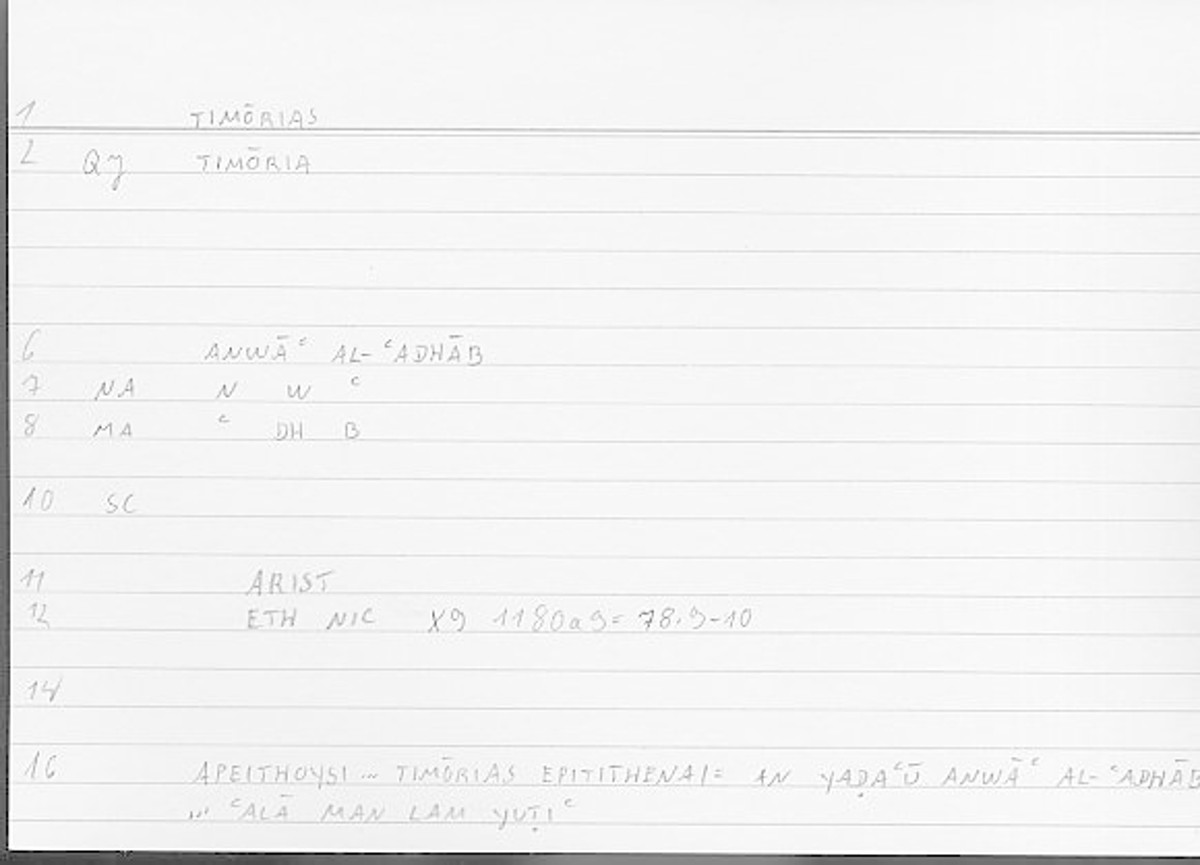 1 TIMŌRIAS
2 Qy TIMŌRIA
6 ANWĀʿ AL-ʿADHĀB
7 NA N W ʿ
8 MA ʿ DH B
10 SC
11 ARIST
12 ETH NIC X9 1180a9= 78.9-10
14
16 APEITHOYSI ... TIMŌRIAS EPITITHENAI= AN YAḌAʿŪ ANWĀʿ AL-ʿADHĀB
... ʿALĀ MAN LAM YUṬIʿ